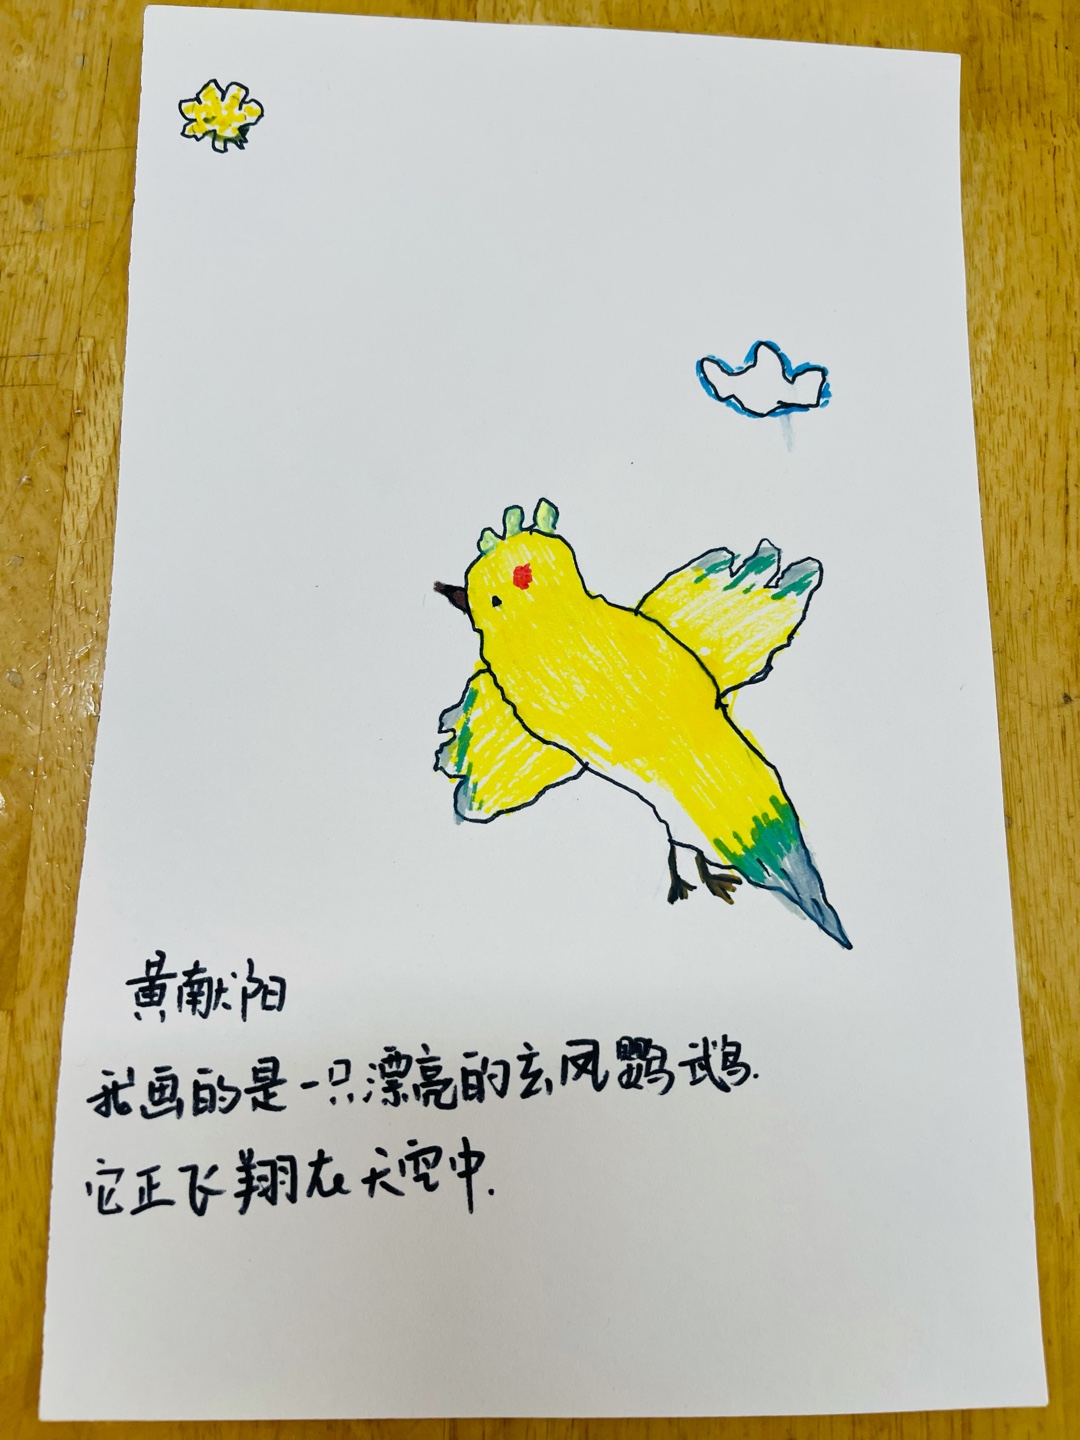 黄献阳
我画的是一只漂亮的玄凤鹦鹉.
它正飞翔在天空中.